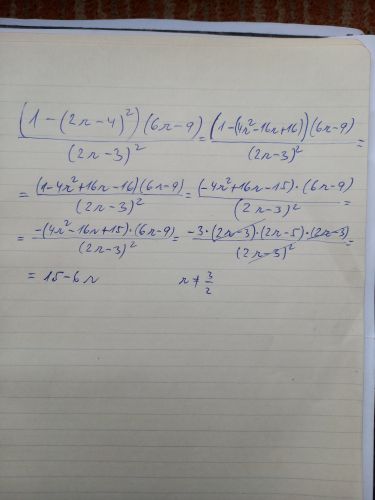 (1-(2x-4)²)(6x-9)/(2x-3)² = (1-(4x²-16x+16))(6x-9)/(2x-3)² =
= (1-4x²+16x-16)(6x-9)/(2x-3)² = (-4x²+16x-15)·(6x-9)/(2x-3)² =
= -(4x²-16x+15)·(6x-9)/(2x-3)² = -3·(2x-3)·(2x-5)·(2x-3)/(2x-3)² =
= 15-6x x≠3/2